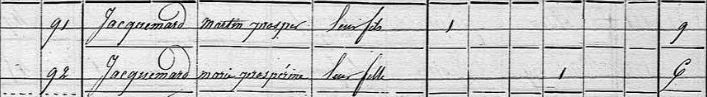 91 Jacquemard martin prosper leur fils 1 9
92 Jacquemard marie prospérine leur fille 1 6